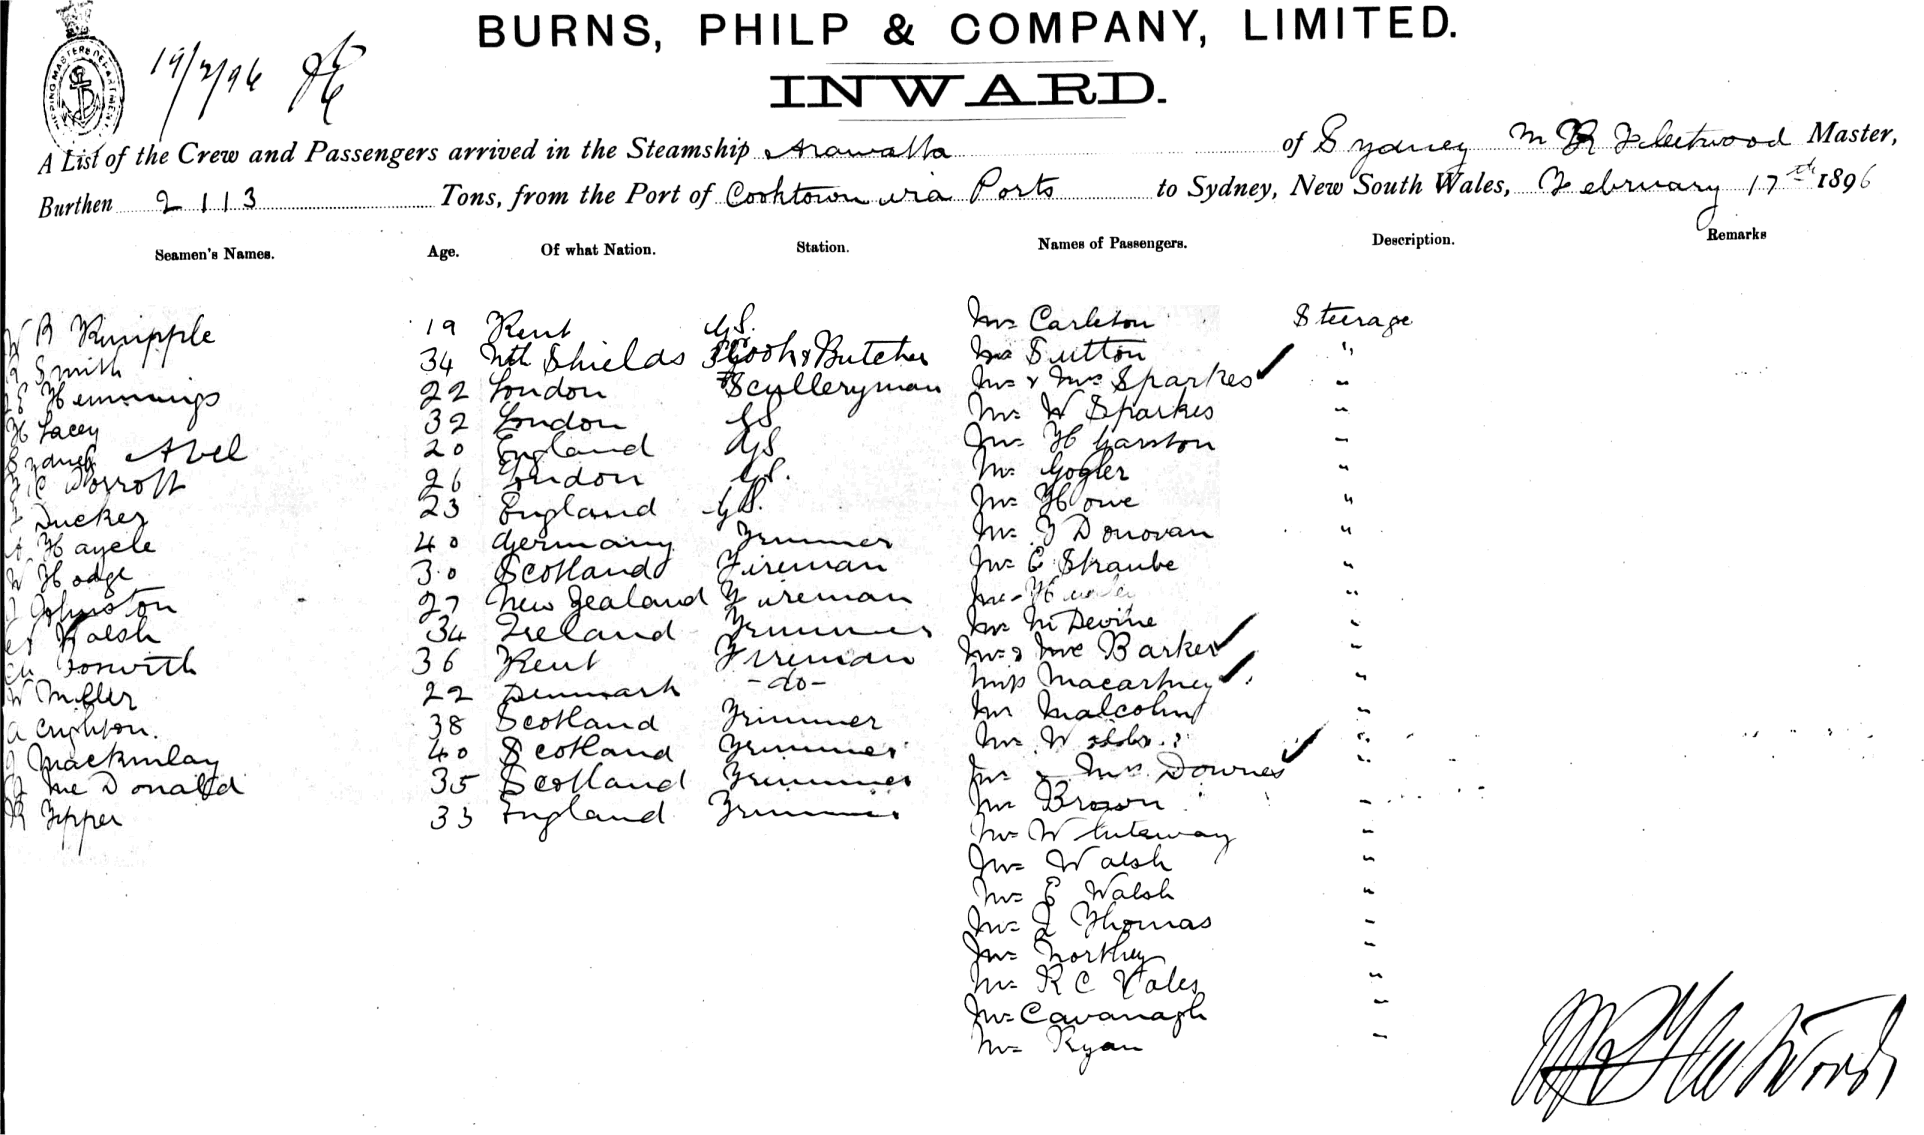 SHIPPING MASTERS DEPARTMENT
19/2/96
BURNS, PHILP & COMPANY, LIMITED.
INWARD.
A List of the Crew and Passengers arrived in the Steamship Arawatta of Sydney M R Fleetwood Master,
Burthen 2113 Tons, from the Port of Cooktown via Ports to Sydney, New South Wales, February 17th 1896
Seamen's Names. Age. Of what Nation. Station. Names of Passengers. Description. Remarks
W B Knipple 19 Kent GS. Mr Carleton Steerage
Smith 34 Nth Shields Cook & Butcher Mr Sutton "
Hemmings 22 London Sculleryman Mr & Mrs Sparkes "
H Lacey 32 London GS Mr W Sparkes "
Sydney Abel 20 England GS Mr H Garston "
C Dorrott 26 London GS. Mr Gogler "
Tucker 23 England GS. Mr Howe "
Hayele 40 Germany Trimmer Mr J Donovan "
W Hodge 30 Scotland Fireman Mr E Straube "
J Johnston 27 New Zealand Fireman Mr
Walsh 34 Ireland Trimmer Mr M Devine "
36 Kent Fireman Mr & Mrs Barker "
W Miller 22 Denmark -do- Miss Macartney "
A Crighton. 38 Scotland Trimmer Mr Malcolm "
Mackinlay 40 Scotland Trimmer Mr "
McDonald 35 Scotland Trimmer Mr & Mrs Downes "
R Tipper 33 England Trimmer Mr Brown "
Mr Whiteway "
Mr Walsh "
Mr E Walsh "
Mr J Thomas "
Mr Northey "
Mr R C Vales "
Mr Cavanagh "
Mr Ryan "
M R Fleetwood